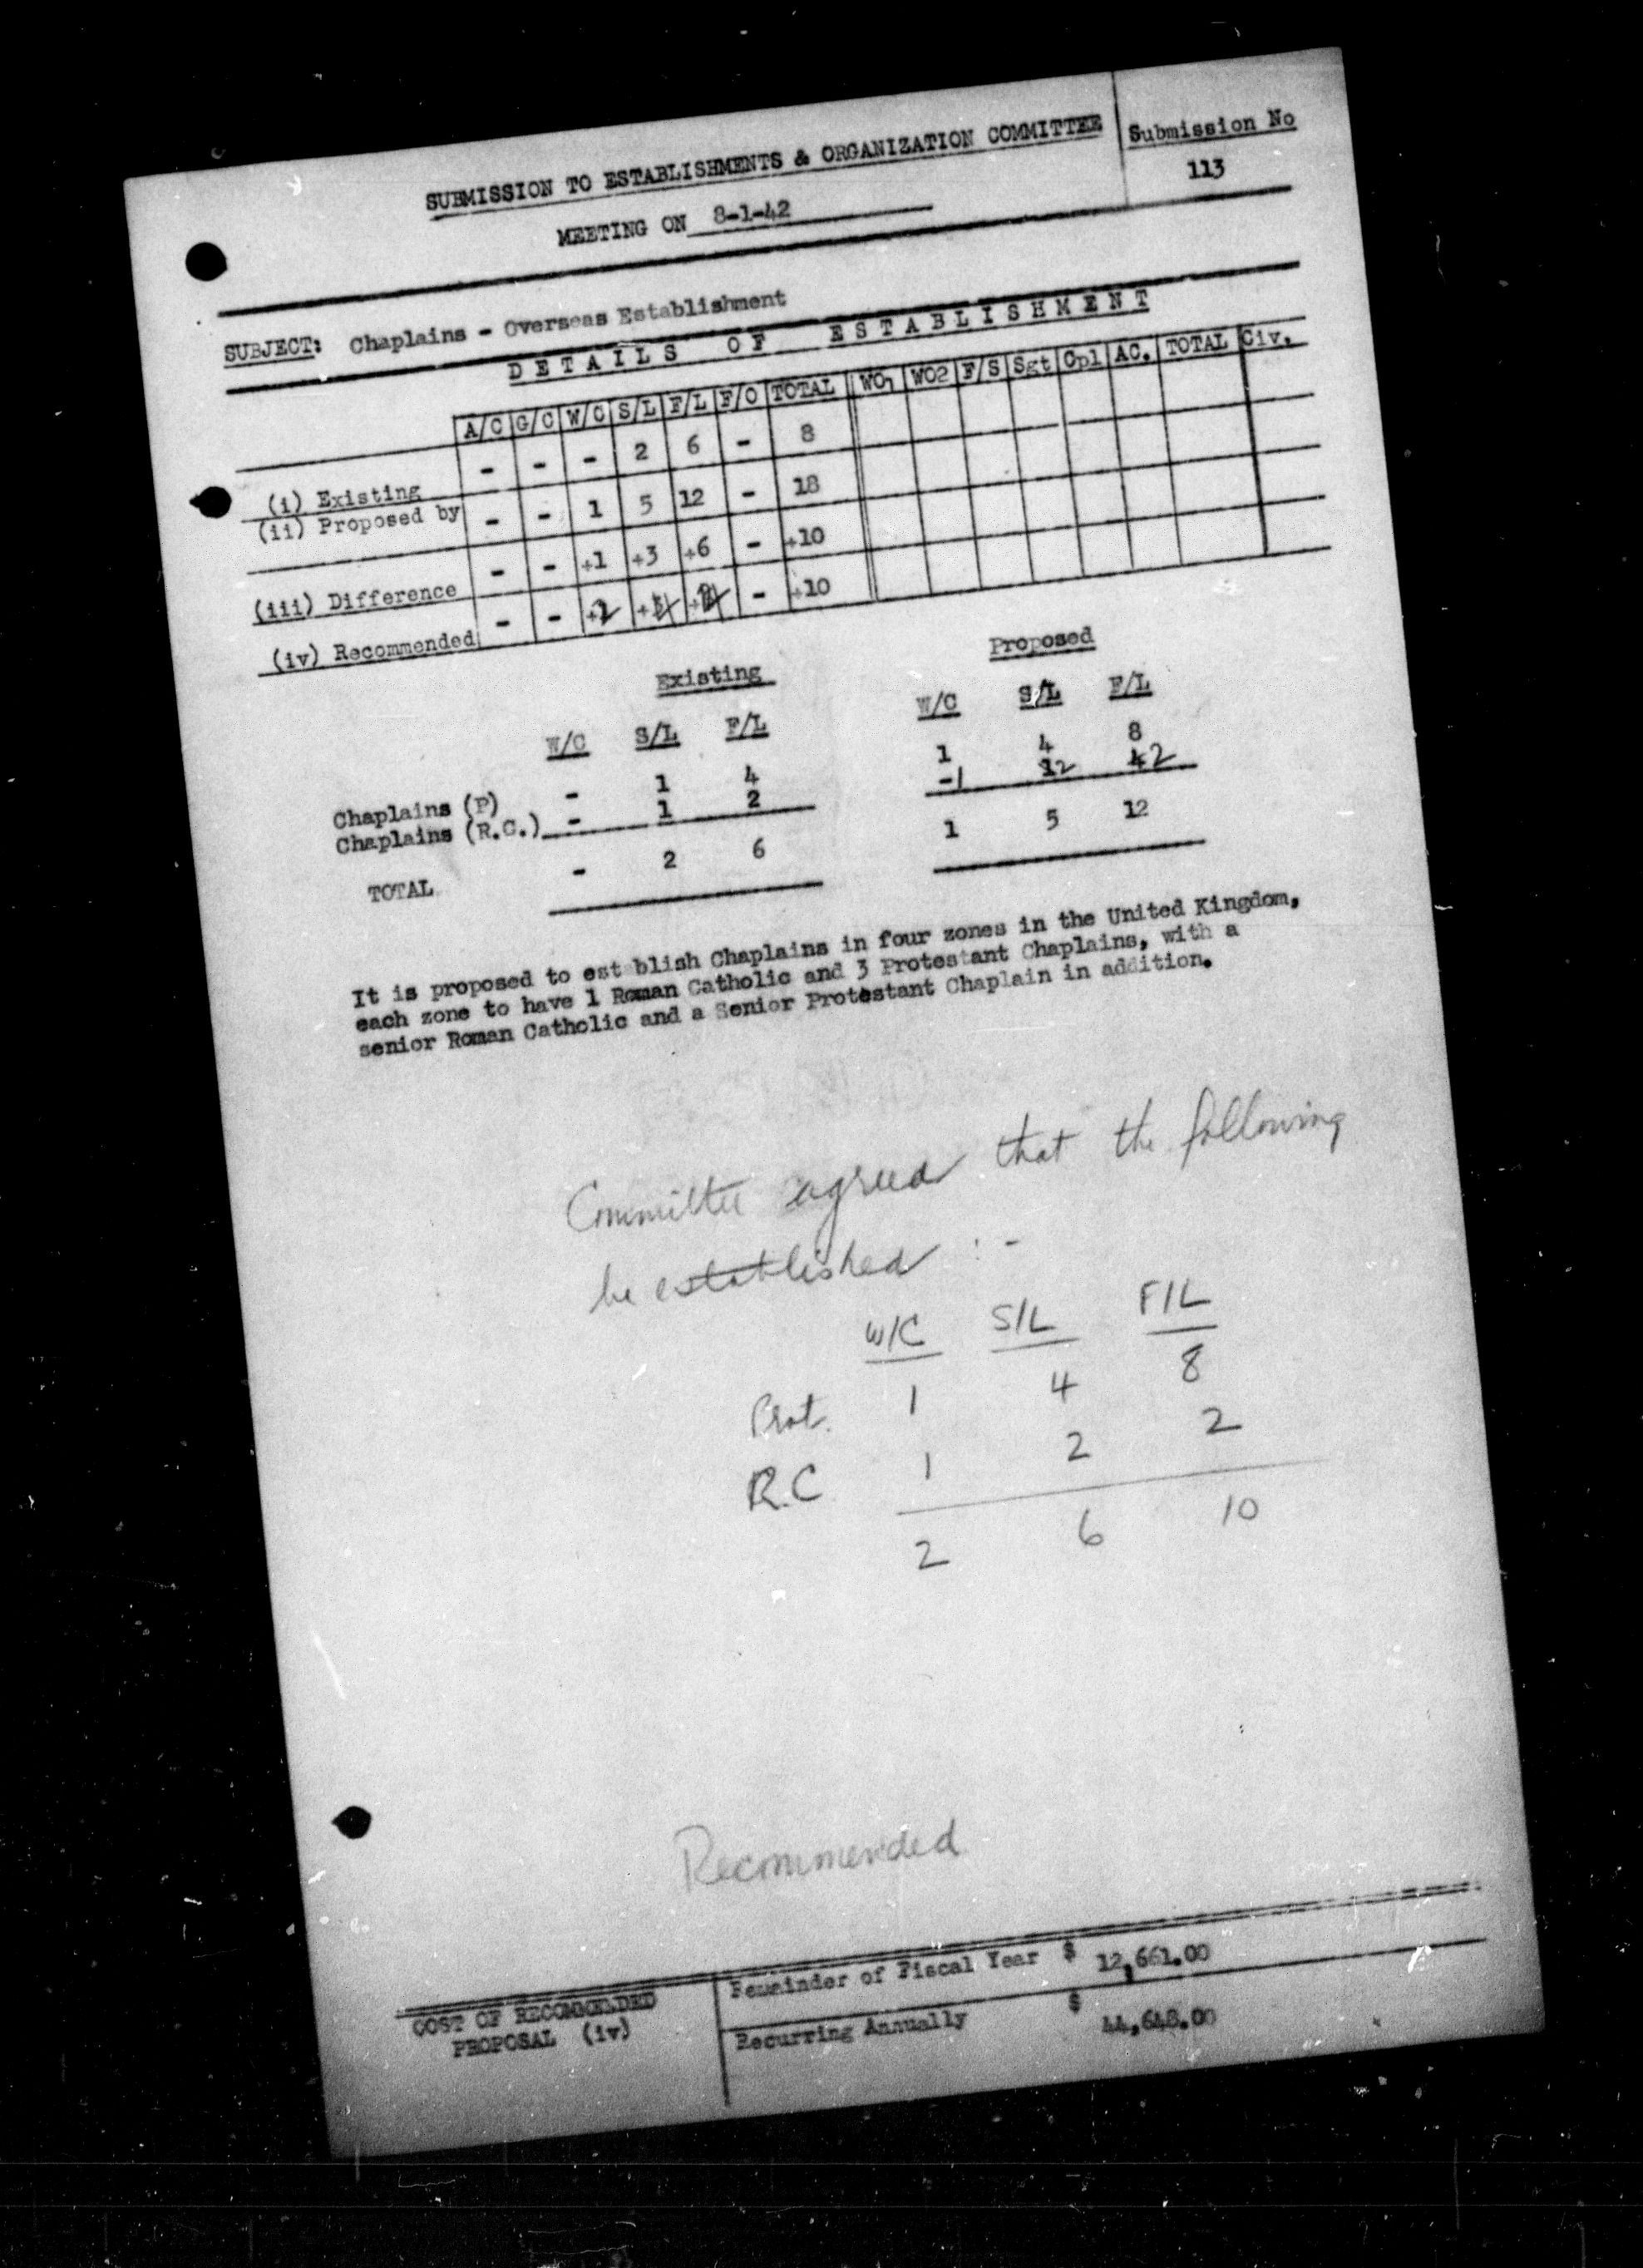 SUBMISSION TO ESTABLISHMENTS & ORGANIZATION COMMITTEE
Submission No
113
MEETING ON 8-1-42
SUBJECT: Chaplains - Overseas Establishment
DETAILS OF ESTABLISHMENT
A/C G/C W/C S/L F/L F/O TOTAL WO1 WO2 F/S Sgt Cpl AC. TOTAL Civ.
(i) Existing - - - 2 6 - 8
(ii) Proposed by - - 1 5 12 - 18
(iii) Difference - - +1 +3 +6 - +10
(iv) Recommended - - +2 + + - +10
Existing Proposed
W/C S/L F/L W/C S/L F/L
Chaplains (P) - 1 4 1 4 8
Chaplains (R.C.) - 1 2 -1 12 42
TOTAL - 2 6 1 5 12
It is proposed to establish Chaplains in four zones in the United Kingdom,
each zone to have 1 Roman Catholic and 3 Protestant Chaplains, with a
senior Roman Catholic and a Senior Protestant Chaplain in addition.
Committee agreed that the following
be established :-
W/C S/L F/L
Prot. 1 4 8
R.C 1 2 2
2 6 10
Recommended
COST OF RECOMMENDED
PROPOSAL (iv)
Remainder of Fiscal Year $ 12,661.00
Recurring Annually $ 44,648.00